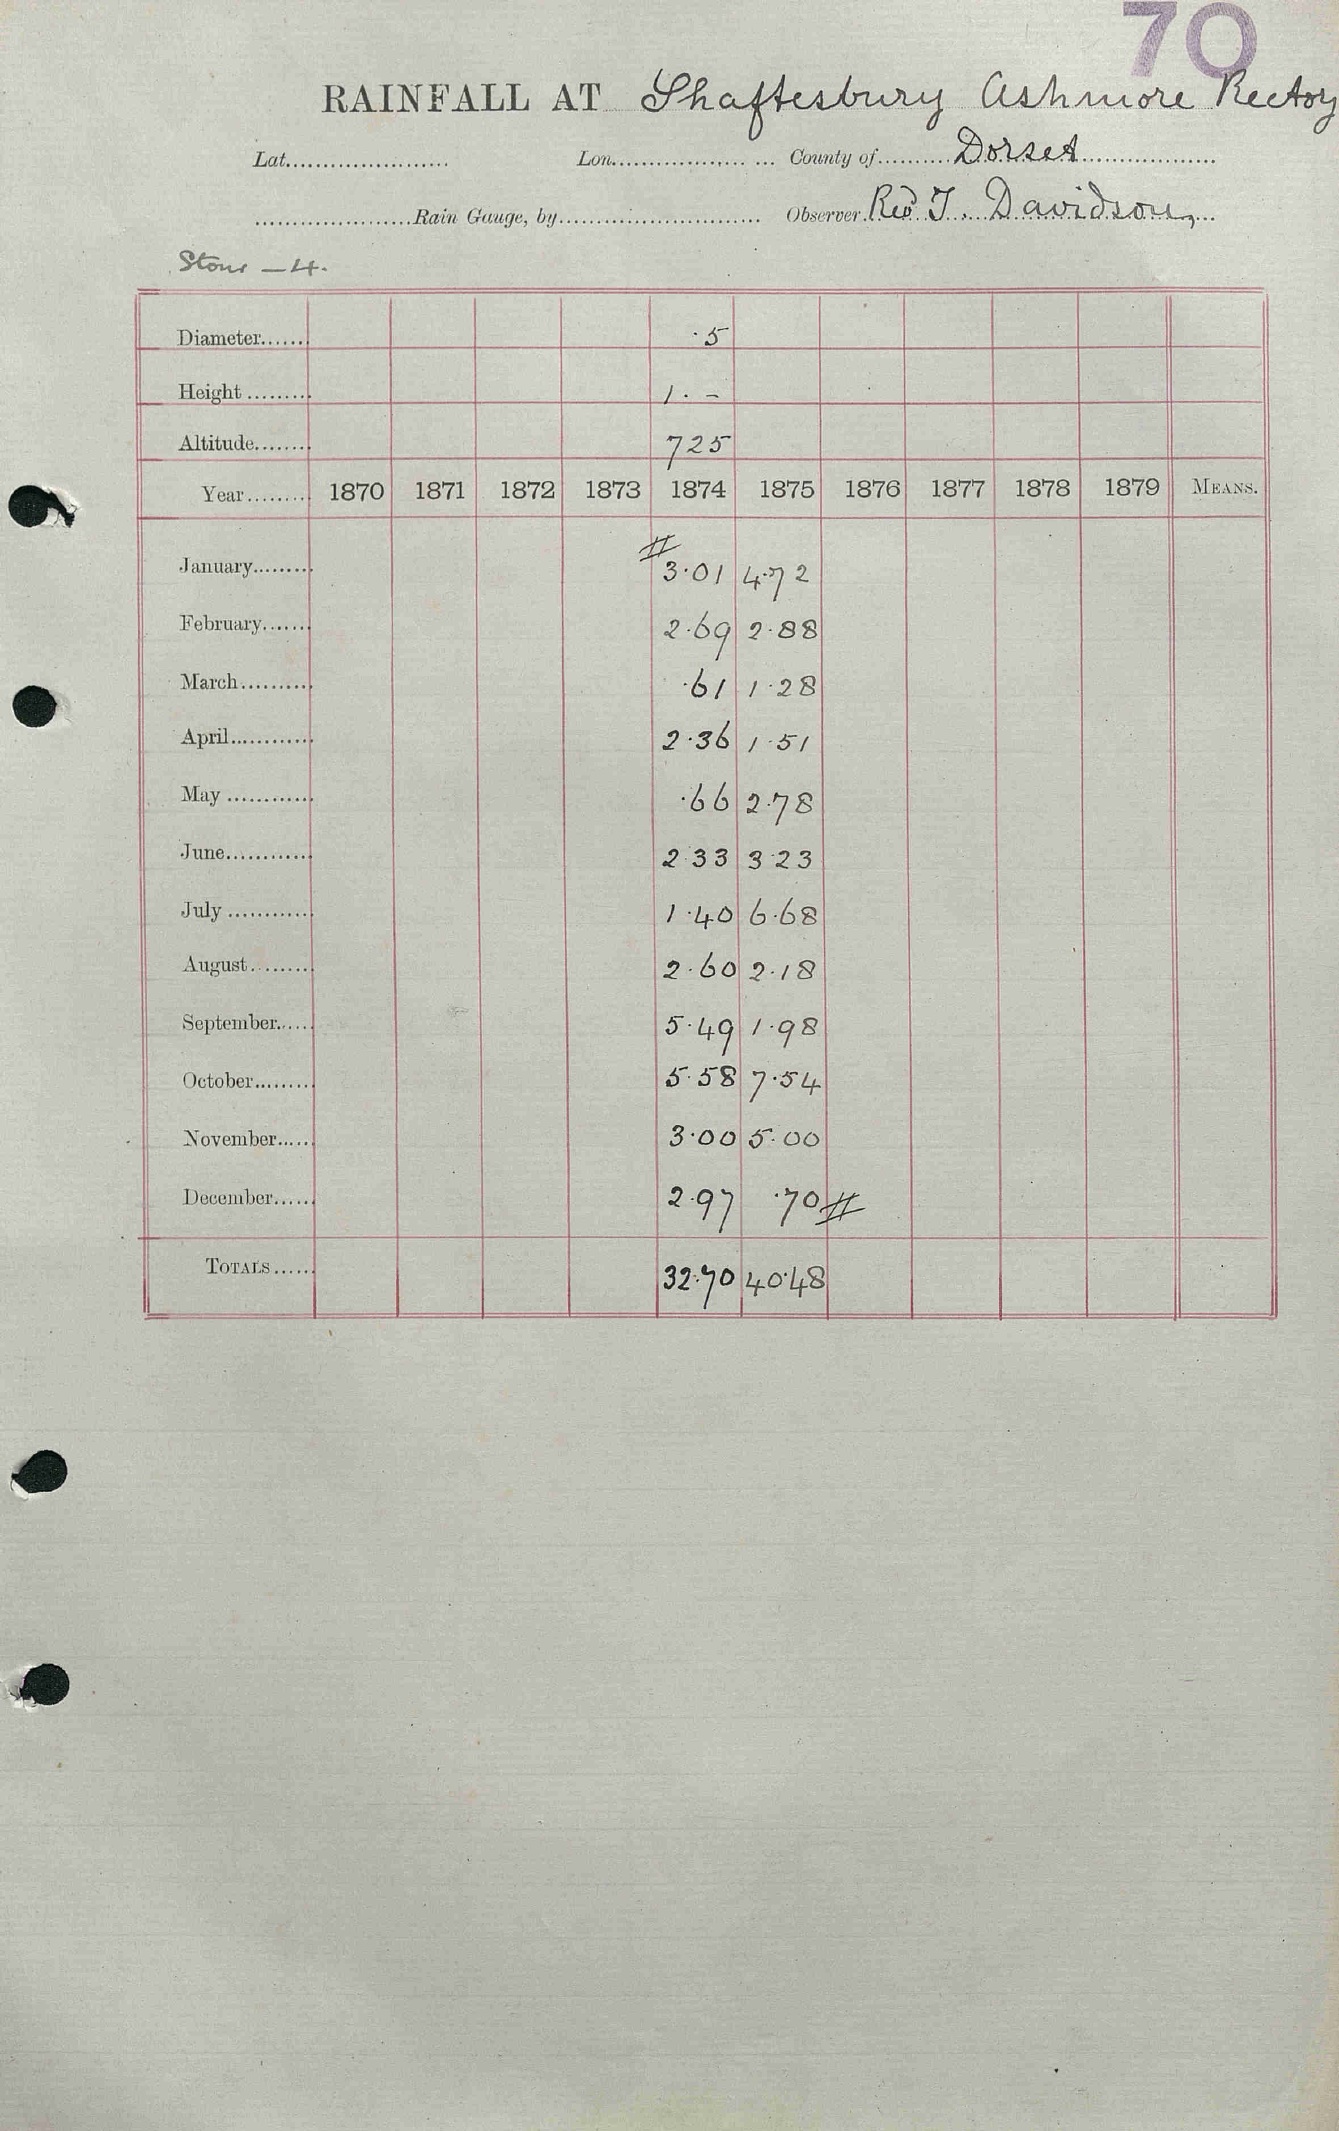 70
RAINFALL AT Shaftesbury Ashmore Rectory
Lat...................... Lon...................... County of.......... Dorset..................
.....................Rain Gauge, by........................... Observer. Revd J. Davidson,...
Stour — 4.
Diameter...... ·5
Height ......... 1. –
Altitude........ 725
Year......... 1870 1871 1872 1873 1874 1875 1876 1877 1878 1879 MEANS.
January......... # 3·01 4·72
February....... 2·69 2·88
March.......... ·61 1·28
April............ 2·36 1·51
May ............ ·66 2·78
June............ 2·33 3·23
July ............ 1·40 6·68
August......... 2·60 2·18
September..... 5·49 1·98
October........ 5·58 7·54
November..... 3·00 5·00
December...... 2·97 ·70 #
TOTALS...... 32·70 40·48